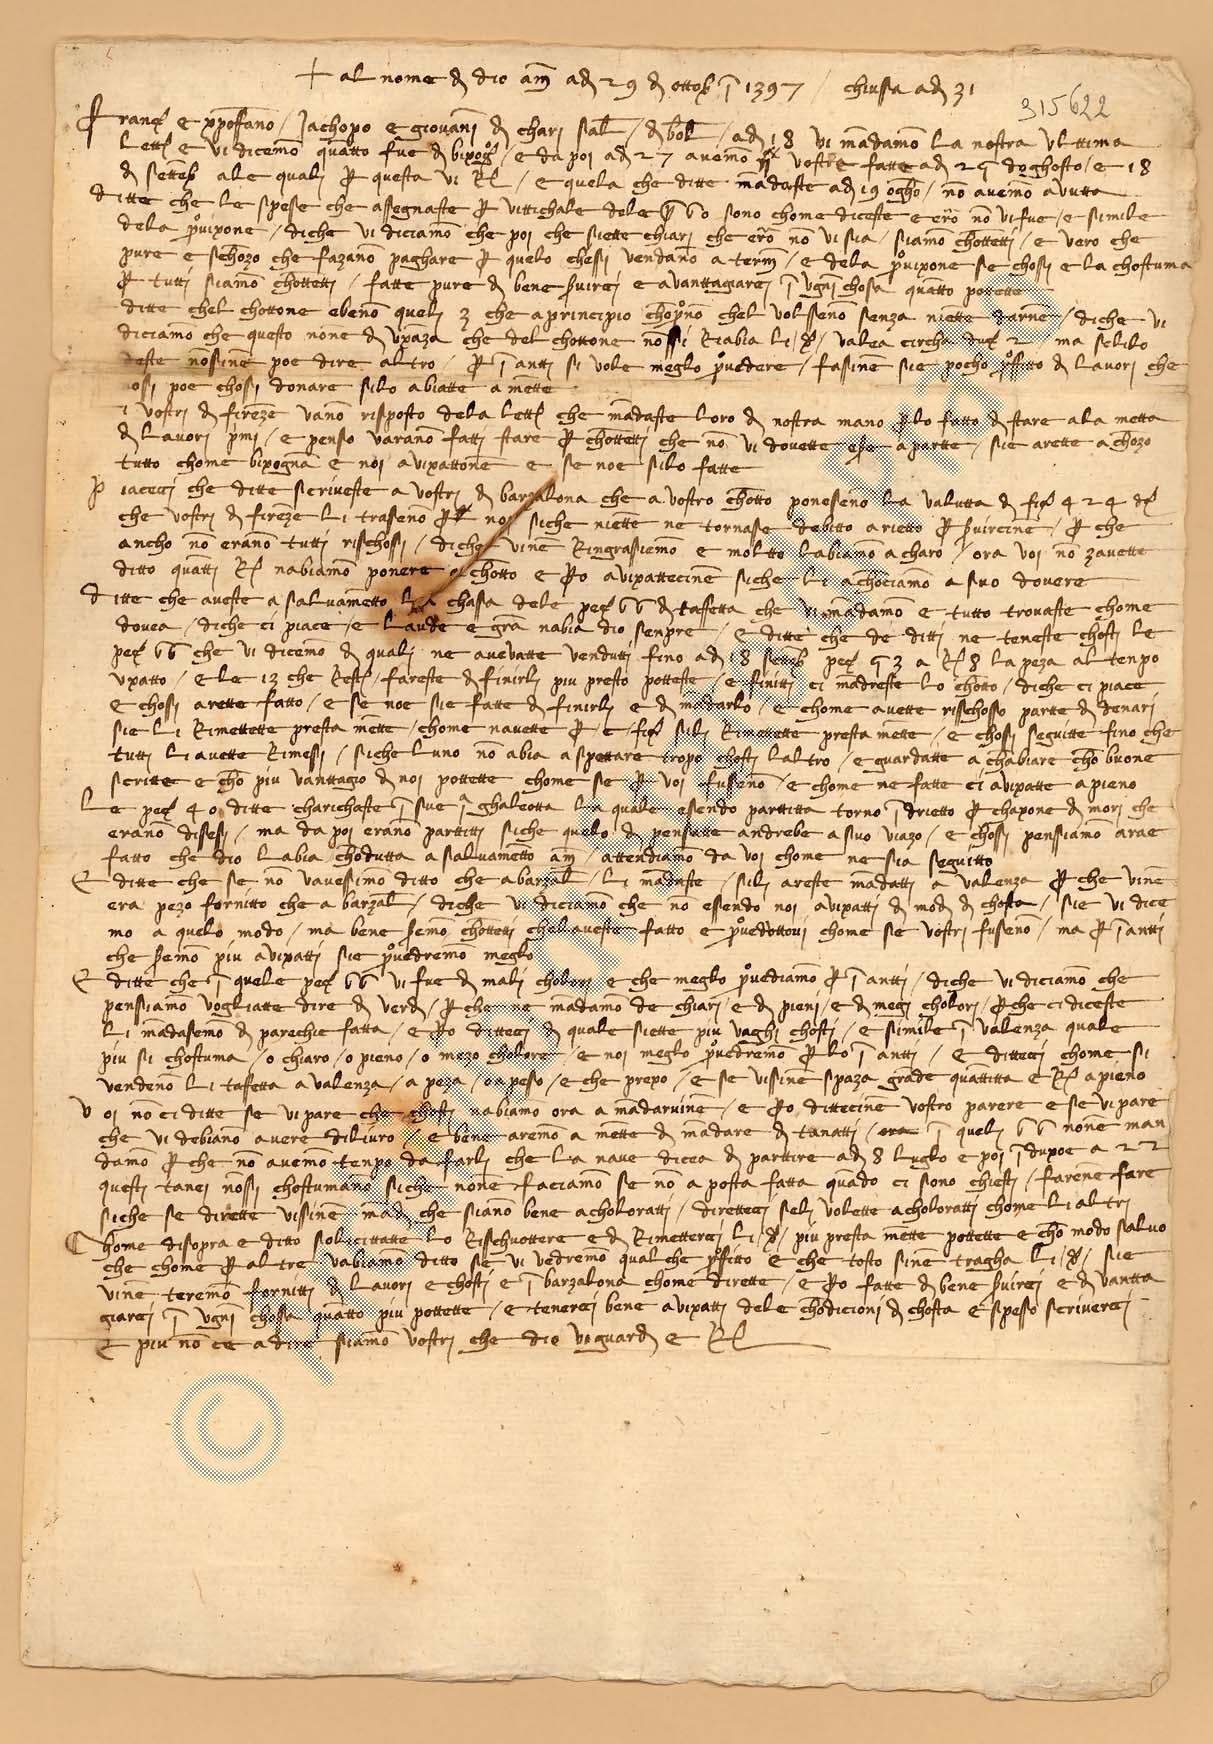 + al nome d dio am adi 29 d ottob 1397 / chiusa adi 31
315622
Franc e xpofano / Jachopo e giovani d chari sal / d bol / adi 18 vi madamo la nostra ulttima
lett e vi dicemo quatto fue d bixog / e da poi adi 27 avemo vostre fatte adi 29 d oghosto / e 18
d setteb ale quali p questa vi R / e quela che ditte madaste adi 19 ogho / no avemo avutta
ditte che le spese che assegnaste p vittichale dele p 60 sono chome diceste e ero no vi fue / e simile
dela provixone / diche vi diciamo che poi che siette chiari che ero no vi sia / siamo chottetti / e vero che
pure e schozo che fazano paghare p quelo chessi vendano a term / e dela provixone se chossi e la chostuma
p tutti siamo chottetti / fatte pure d bene servirci e avanttagiarci i ugni chosa quatto pottette
ditte chel chottone ebeno queli 3 che aprincipio chopono chel volsseno senza niette darne / diche vi
diciamo che questo none d uxaza che del chottone nossi riabia li / valea circha duc 2 / ma selilo
deste nossine poe dire altro / p i antti si vole meglo provedere / fassine sie pocho profitto d lavori che
nosi poe chossi donare silo abiatte a mette
i vostri d fireze vano risposto dela lett che madaste loro d nostra mano p lo fatto d stare ala metta
d lavori pmi / e penso varano fatti stare p chottetti che no vi dovette ese a partte / sie arette a chozo
tutto chome bixogna e noi avixattone e se noe silo fatte
P iaceci che ditte scriveste a vostri d barzalona che a vostro chotto ponesseno la valutta d fior 424
che vostri d fireze li trasseno p noi siche niette ne tornasse debitto arietto p servircine / p che
ancho no erano tutti rischossi / diche vine Ringrassiemo e moltto labiamo acharo / ora voi no zavette
ditto quatti R nabiamo ponere al chotto e po avixattecine siche li achociamo a suo dovere
ditte che aveste a salvametto la chassa dele pez 66 d taffetta che vi madamo e tutto trovaste chome
dovea / diche ci piace / e laude e gra nabia dio senpre / e ditte che de ditti ne teneste chosti le
pez 66 che vi dicemo d quali ne avevatte vendutti fino adi 18 setteb pez 53 a R 8 la peza al tenpo
uxatto / e le 13 che Rest / fareste d finirli piu presto potteste / e finitti ci madreste lo chotto / diche ci piace
e chossi arette fatto / e se noe sie fatte d finirli e d madarlo / e chome avette risschosso partte d denari
sie li Rimettette presta mette / chome navette p c fior sili Rimettette presta mette / e chossi seguitte fino che
tutti li avette Rimessi / siche luno no abia aspettare tropo chosti laltro / e guardatte a chabiare cho buone
scritte e cho piu vanttagio d noi pottette chome se p voi fusseno / e chome ne fatte ci avixatte a pieno
Le pez 40 ditte charichaste i sue i ghaleotta la quale esendo parttitta torno i drietto p chapone d mori che
erano dissesi / ma da poi erano parttitti siche quelo d pensatte andrebe a suo viazo / e chossi penssiamo arae
fatto che dio labia chodutta a salvametto am / attendiamo da voi chome ne sia seguitto
E ditte che se no vavessimo ditto che a barzal li madaste / sili areste madatti a valenza p che vine
era pezo fornitto che a barzal / diche vi diciamo che no essendo noi avixatti d modi d chosta / sie vi dice
mo a quelo modo / ma bene semo chottetti chelaveste fatto e provedottovi chome se vostri fusseno / ma p i antti
che semo piu avixatti sie provedremo meglo
E ditte che i quele pez 66 vi fue d mali cholori e che meglo provediamo p i antti / diche vi diciamo che
penssiamo vogliatte dire d verdi / p che ne madamo de chiari / e d pieni / e d megi cholori / p che ci diceste
li madassemo d parechie fatta / e po dittecci d quale siette piu vaghi chosti / e simile i valenza quale
piu si chostuma / o chiaro / o pieno / o mezo cholore / e noi meglo provedremo p lo i antti / E dittecci chome si
vendeno li taffetta a valenza / a peza / o a peso / e che prexo / e se vissine spaza grade quattitta e R a pieno
V oi no ci ditte se vi pare che chosti nabiamo ora a madarvine / e po dittecine vostro parere e se vi pare
che vi debiano avere dilivro / e bene aremo a mette d madare d tanatti / i queli 66 none man
damo p che no avemo tenpo da farli che la nave dicea d parttire adi 8 luglo e poi i dupoe a 22
questi tanei nossi chostumano siche none faciamo se no a posta fatta quado ci sono chiesti / farene fare
siche se dirette vissine madi che siano bene acholoratti / direttecci seli volette acholoratti chome li altri
Chome disopra e ditto solicittatte lo Risschuottere e d Rimettercci li / piu presta mette pottette e cho modo salvo
che chome p altre vabiamo ditto se vi vedremo qualche profitto e che tosto sine tragha li / sie
vine teremo fornitti d lavori e chosti e i barzalona chome dirette / e po fatte d bene servirci e d vantta
giarci i ugni chossa quatto piu pottette / e tenerci bene avixatti dele chodicioni d chosta e spesso scrivercci
E piu no ce a dire siamo vostri che dio vi guardi e R